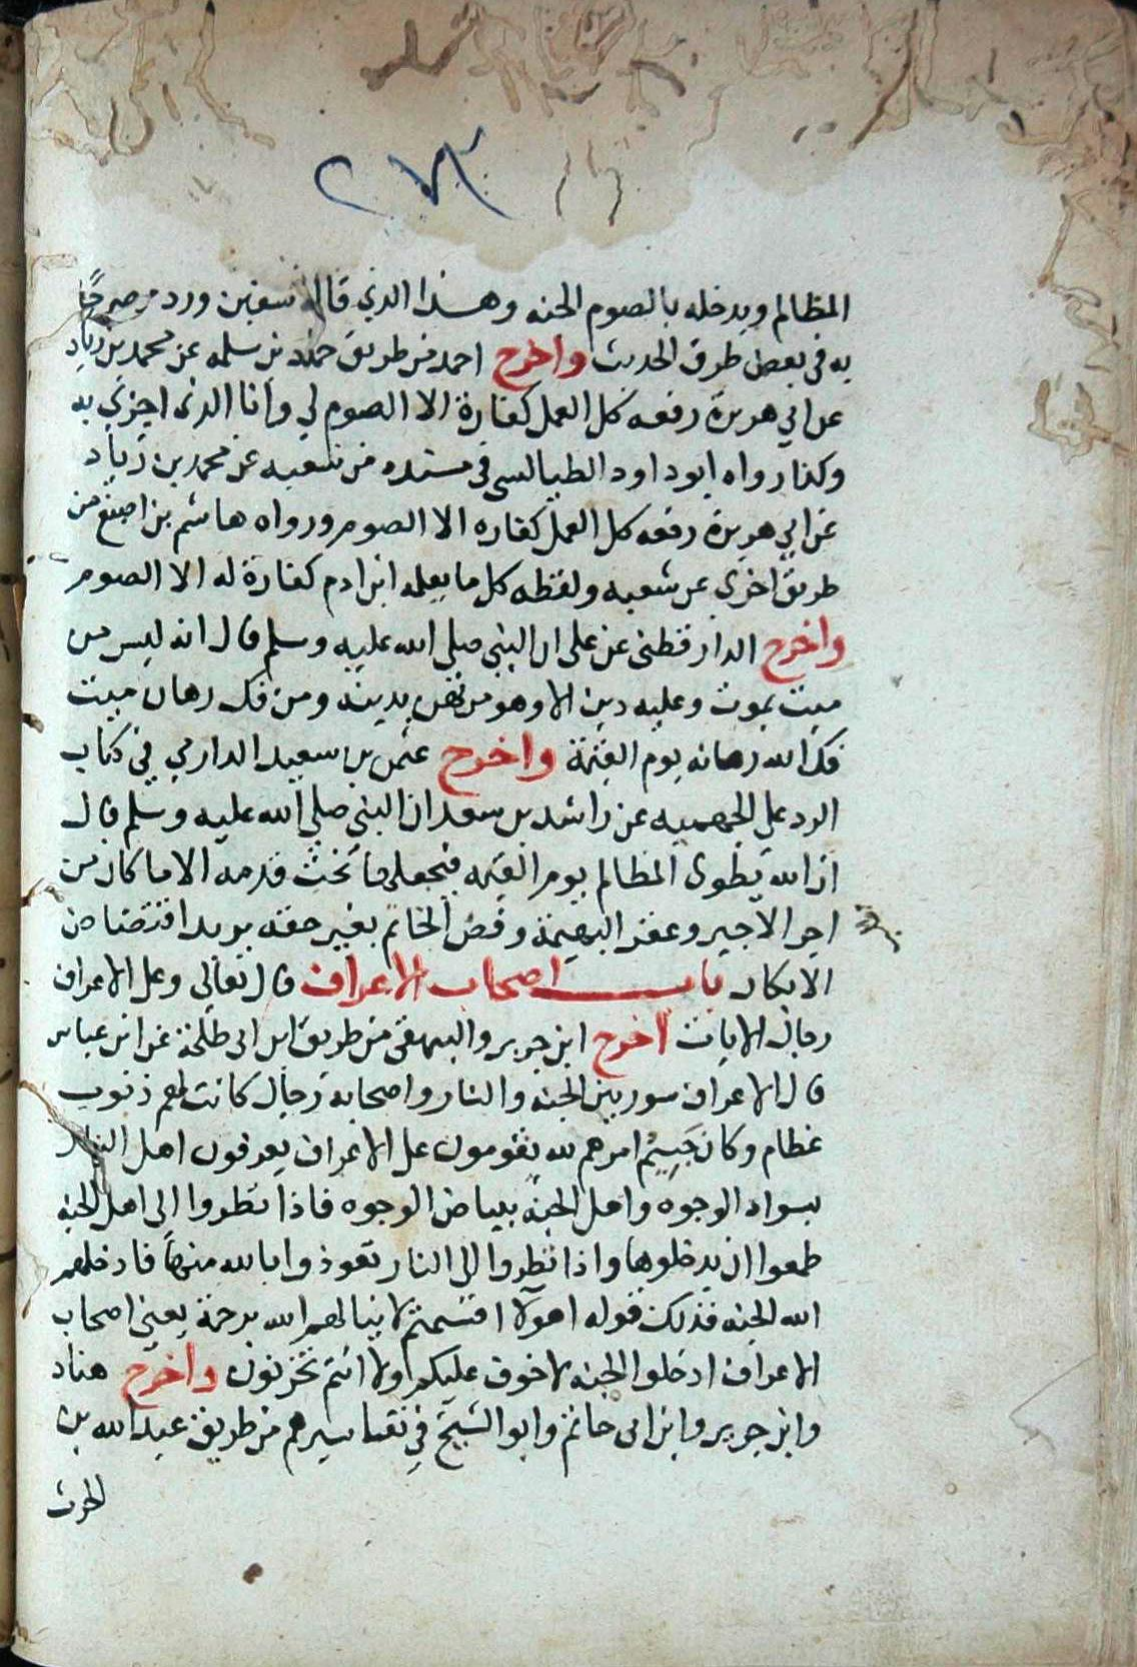 ٢٧٣
المظالم ويدخله بالصوم الجنه وهذا الذي قاله سفين ورد مصرحًا
به في بعض طرق الحديث واخرج احمد من طريق حماد بن سلمه عن محمد بن زياد
عن ابي هريرة رفعه كل العمل كفارة الا الصوم لي وانا الذى اجزي به
وكذا رواه ابو داود الطيالسى في مسنده من شعبه عن محمد بن زياد
عن ابي هريرة رفعه كل العمل كفاره الا الصوم ورواه هاشم بن اصبغ من
طريق اخرى عن شعبه ولفظه كل ما يعمله ابن ادم كفارة له الا الصوم
واخرج الدار قطنى عن على ان النبي صلى الله عليه وسلم قال انه ليس من
ميت يموت وعليه دين الا وهو مرتهن بدينه ومن فك رهان ميت
فك الله رهانه يوم القيمة واخرج عثمن بن سعيد الدارمي في كتاب
الرد علي الجهميه عن راشد بن سعد ان النبي صلي الله عليه وسلم قال
ان الله يطوى المظالم يوم القيمه فيجعلها تحت قدمه الا ما كان من
اجر الاجير وعقر البهيمة وفض الخاتم بغير حقه يريد اقتضاض
الابكار باب اصحاب الاعراف قال تعالى وعلى الاعراف
رجال الايات اخرج ابن جرير والبيهقى من طريق ابن ابى طلحة عن ابن عباس
قال الاعراف سور بين الجنه والنار واصحابه رجال كانت لهم ذنوب
عظام وكان جسيم امرهم لله يقومون على الاعراف يعرفون اهل النار
بسواد الوجوه واهل الجنة ببياض الوجوه فاذا نظروا الى اهل الجنه
طمعوا ان يدخلوها واذا نظروا الى النار تعوذوا بالله منها فادخلهم
الله الجنه فذلك قوله اهولا اقسمتم لا ينالهم الله برحمة يعني اصحاب
الاعراف ادخلوا الجنه لا خوف عليكم ولا انتم تحزنون واخرج هناد
وابن جرير وابن ابى حاتم وابو الشيخ في تفاسيرهم من طريق عبد الله بن
الحرث